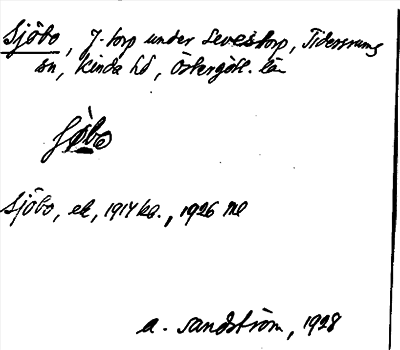 Sjöbo, f. torp under Levestorp, Tidersrums
sn, Kinda hd, Östergötl. län
Sjöbo, ek, 1917 ka., 1926 MB
A. Sandström, 1928